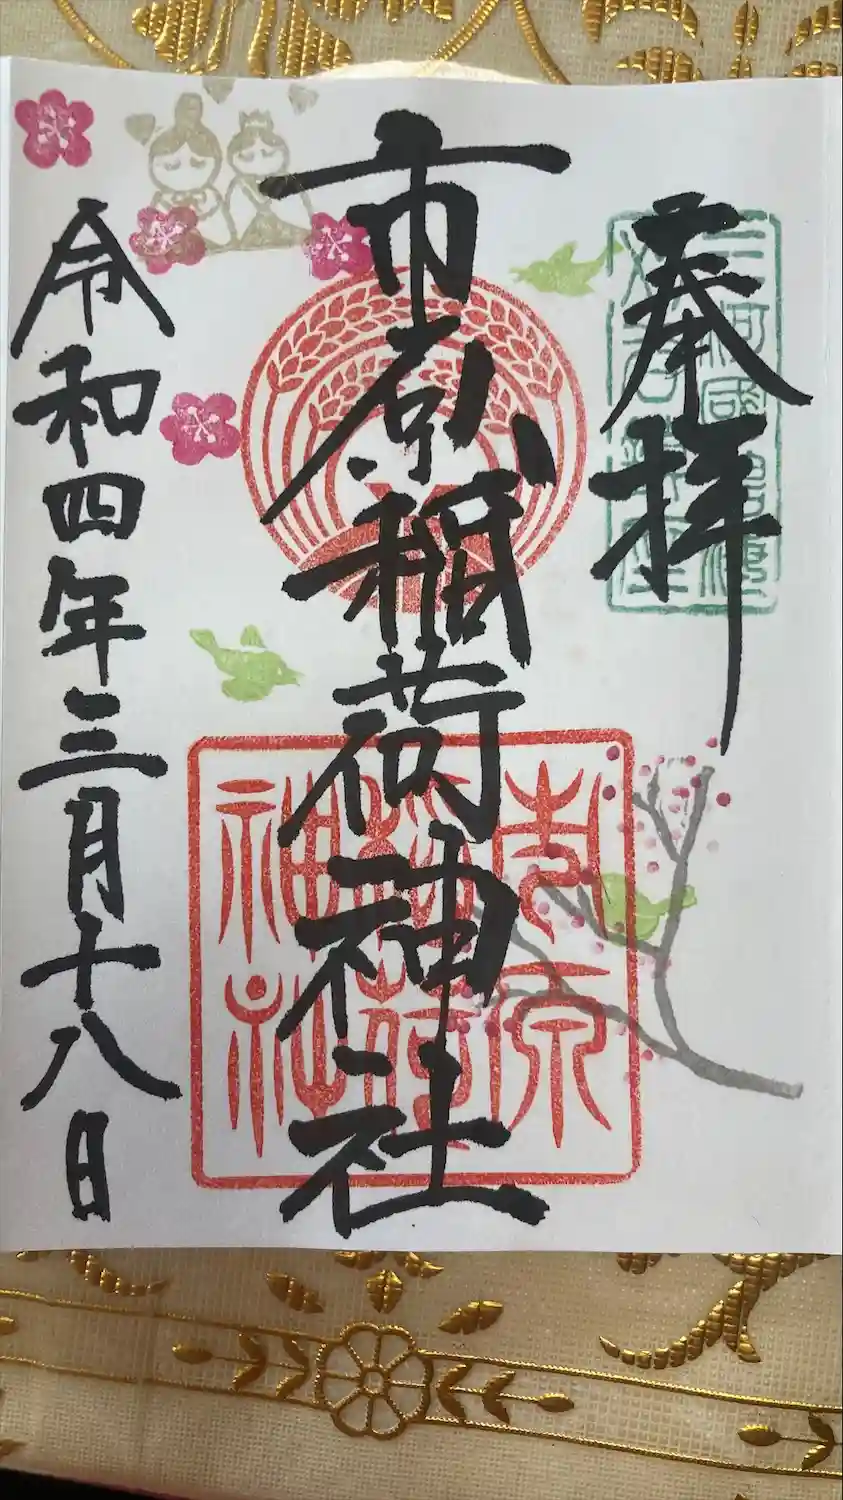 奉拝
三河國碧海
市原稲荷神社
市原
稲荷
神社
令和四年三月十八日